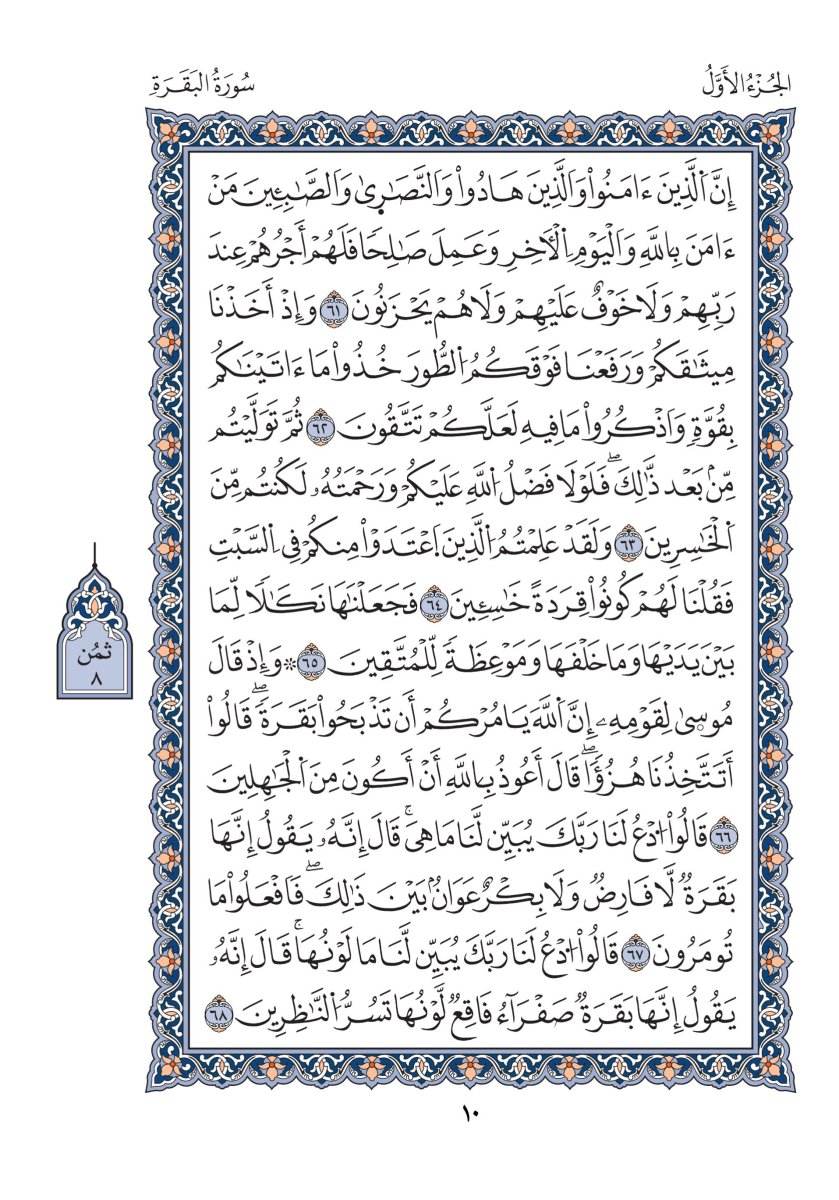 الجُزْءُ الأَوَّلُ
سُورَةُ البَقَرَةِ
إِنَّ اَ۬لَّذِينَ ءَامَنُواْ وَالَّذِينَ هَادُواْ وَالنَّصَٰرِىٰ وَالصَّٰبِـِٔينَ مَنْ
ءَامَنَ بِاللَّهِ وَالْيَوْمِ اِ۬لْأٓخِرِ وَعَمِلَ صَٰلِحًا فَلَهُمْ أَجْرُهُمْ عِندَ
رَبِّهِمْ وَلَا خَوْفٌ عَلَيْهِمْ وَلَا هُمْ يَحْزَنُونَ ٦١ وَإِذْ أَخَذْنَا
مِيثَٰقَكُمْ وَرَفَعْنَا فَوْقَكُمُ اُ۬لطُّورَ خُذُواْ مَا ءَاتَيْنَٰكُم
بِقُوَّةٍ وَاذْكُرُواْ مَا فِيهِ لَعَلَّكُمْ تَتَّقُونَ ٦٢ ثُمَّ تَوَلَّيْتُم
مِّنۢ بَعْد ذَّٰلِكَۖ فَلَوْلَا فَضْلُ اُ۬للَّهِ عَلَيْكُمْ وَرَحْمَتُهُۥ لَكُنتُم مِّنَ
اَ۬لْخَٰسِرِينَ ٦٣ وَلَقَدْ عَلِمْتُمُ اُ۬لَّذِينَ اَ۪عْتَدَوْاْ مِنكُمْ فِى اِ۬لسَّبْتِ
فَقُلْنَا لَهُمْ كُونُواْ قِرَدَةً خَٰسِـِٔينَ ٦٤ فَجَعَلْنَٰهَا نَكَٰلًا لِّمَا
بَيْنَ يَدَيْهَا وَمَا خَلْفَهَا وَمَوْعِظَةً لِّلْمُتَّقِينَ ٦٥ ۞ وَإِذْ قَالَ
مُوسىٰ لِقَوْمِهِۦ إِنَّ اَ۬للَّهَ يَامُرْكُمْ أَن تَذْبَحُواْ بَقَرَةًۖ قَالُواْ
أَتَتَّخِذُنَا هُزُؤًاۖ قَالَ أَعُوذُ بِاللَّهِ أَنْ أَكُونَ مِنَ اَ۬لْجَٰهِلِينَ
٦٦ قَالُواْ اُ۟دْعُ لَنَا رَبَّكَ يُبَيِّن لَّنَا مَا هِىَۚ قَالَ إِنَّهُۥ يَقُولُ إِنَّهَا
بَقَرَةٌ لَّا فَارِضٌ وَلَا بِكْرٌ عَوَانٌۢ بَيْنَ ذَٰلِكَۖ فَافْعَلُواْ مَا
تُومَرُونَ ٦٧ قَالُواْ اُ۟دْعُ لَنَا رَبَّكَ يُبَيِّن لَّنَا مَا لَوْنُهَاۚ قَالَ إِنَّهُۥ
يَقُولُ إِنَّهَا بَقَرَةٌ صَفْرَآءُ فَاقِعٌ لَّوْنُهَا تَسُرُّ اُ۬لنَّٰظِرِينَ ٦٨
ثمُن
٨
١٠